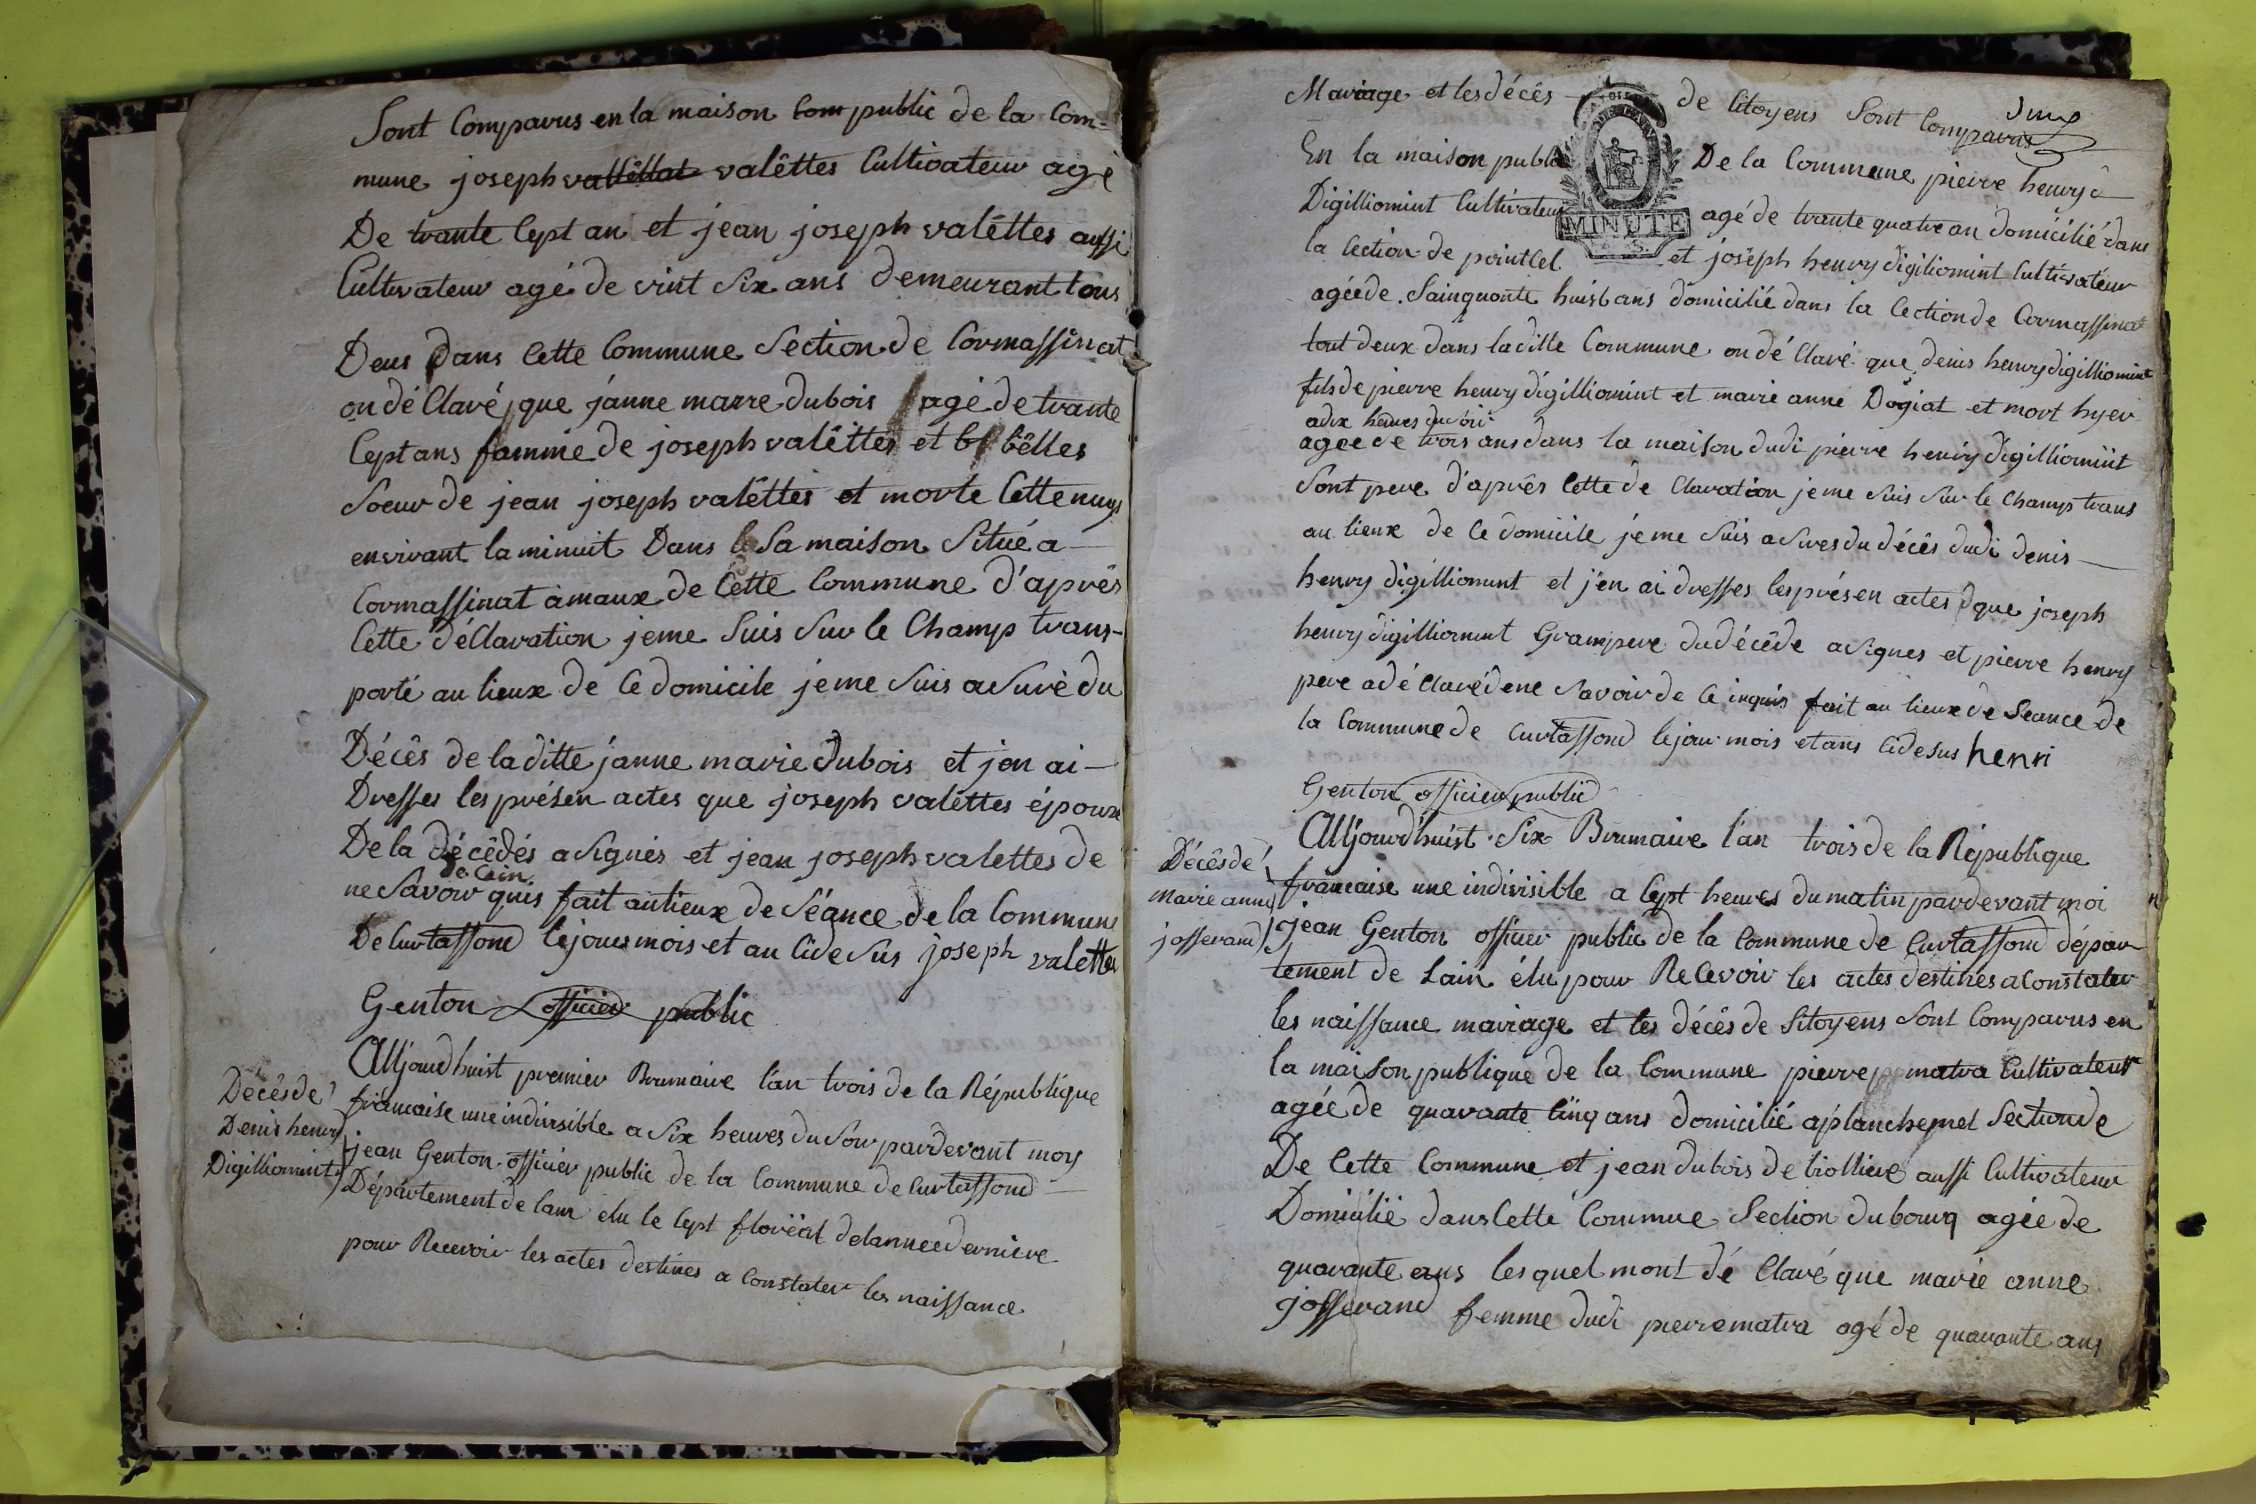 Sont Comparus en la maison com public de la Com=
mune joseph vallêllat valêttes Cultivateur agé
De trante Cept an et jean joseph valêttes aussi
Cultivateur agé de vint Six ans Demeurant tous
Deus Dans Cette Commune Section de Cormassinat
on dé Claré que janne marre dubois agé de trante
Cept ans famme de joseph valêttes et bêlles
Soeur de jean joseph valêttes et morte Cette nuys
envirant la minuit Dans Sa maison Situé a
Cormassinat amaux de Cette Commune D'aprês
Cette déClaration je me Suis Sur le Champ trans-
porté au lieux de Ce domicile je me Suis asuré du
Décês de la ditte janne marie dubois et jen ai
Dresses les présen actes que joseph valêttes époux
De la décêdés a Signés et jean joseph valettes de
de Cein
ne Savoir quis fait au lieux de Séance de la Commune
De Curtassond le jour mois et an Cidesus joseph valettes
Genton officier public
Décês de
Denis henry
Digilliomint
AUjourdhuist premier Brumaire l'an trois de la République
française une indivisible a Six heures du Soir pardevant moy
jean Genton officier public de la Commune de Curtassond
Département de lain elu le Cept floréal de lannee derniere
pour Recevoir les actes destines a Constater les naissance
Mariage et les décês de Citoyens Sont Comparus
En la maison public De la Commune pierre henry d
MINUTE
Digilliomint Cultivateur agé de trante quatre an domicilié dans
la Cection de point Cel et joseph henry digiliomint Cultivateur
agée de Sainquonte huist ans domicilié dans la Cection de Cormassinat
tout deux dans la ditte Commune on dé Claré que denis henry digilliomint
fils de pierre henry digilliomint et marie anne Dogiat et mort hyer
adix heures du Soir
agee de trois ans dans la maison dudi pierre henry digilliomint
Sont pere d'aprês Cette de Claration je me Suis Sur le Champ trans
au lieux de Ce domicile je me Suis asures du décês dudi denis
henry digilliomint et j'en ai dresses les présen actes que joseph
henry digilliomint Grampere du décêde a Signes et pierre henry
pere a dé Claré de ne Savoir de Ce inquis fait au lieux de Seance de
la Commune de Curtassond le jour mois et ans Cidesus henri
Genton officier public
Décês de
marie anne
josserand
AUjourdhuist Six Brumaire l'an trois de la République
francaise une indivisible a Cept heures du matin pardevant moi
jean Genton officier public de la Commune de Curtassond dépar
tement de Lain élu pour ReCevoir les actes destinés a Constater
les naissance mariage et les décês de Sitoyens Sont Comparus en
la maison publique de la Commune pierre matra Cultivateur
agée de quarante Cinq ans domicilié a planchemel Section de
De Cette Commune et jean dubois de biolliere aussi Cultivateur
Domicilié dans Cette Commue Section du bourq agée de
quarante ans lesquel mont dé Claré que marie anne
josserand femme dudi pierre matra agé de quarante ans